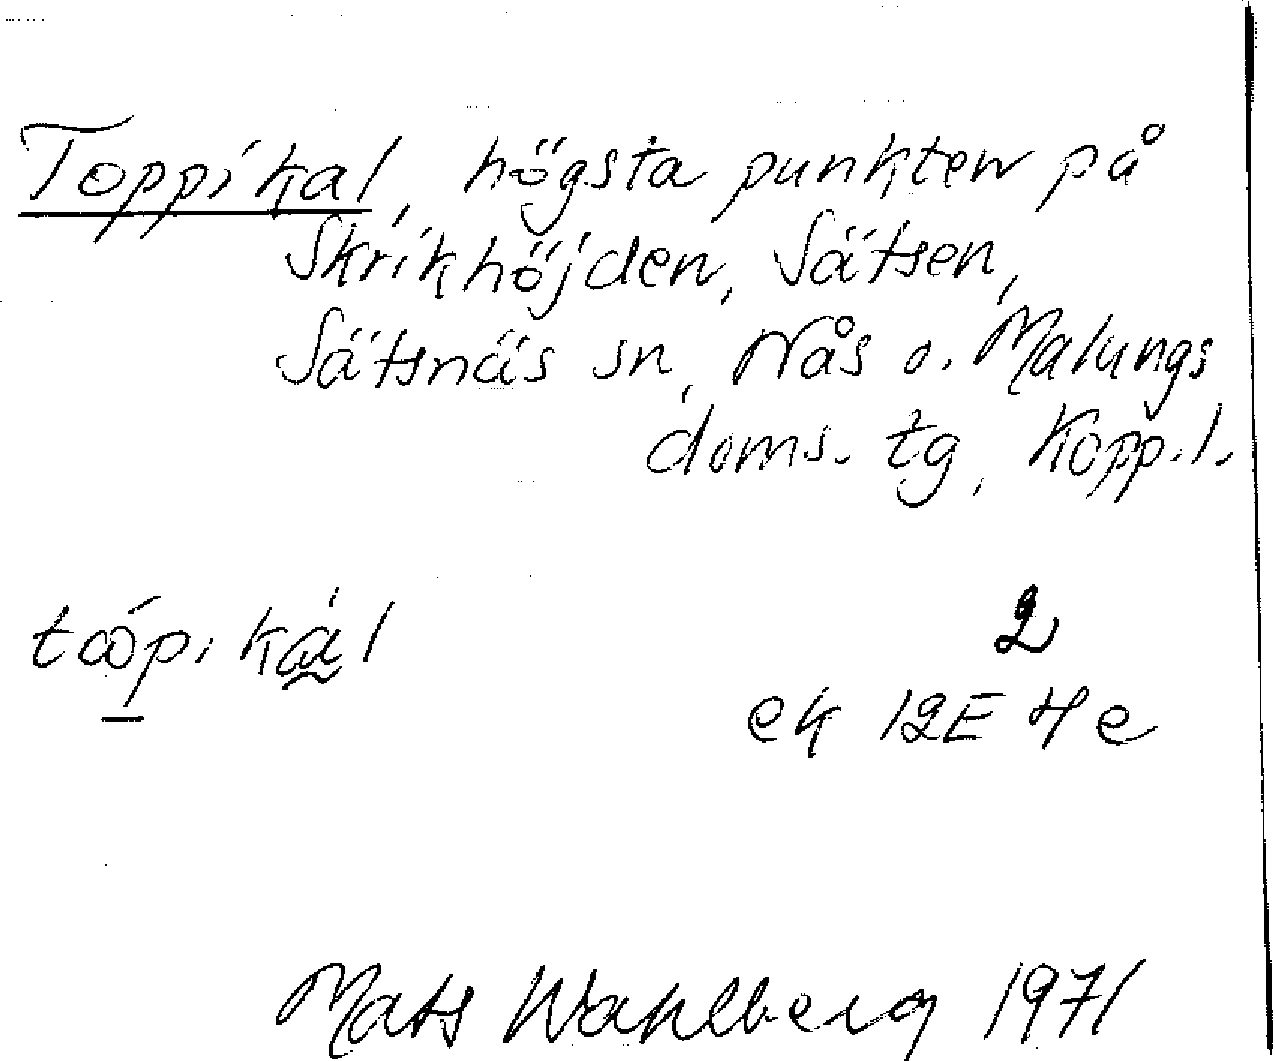 Toppikal, högsta punkten på
Skrikhöjden, Sätsen,
Sätsnäs sn, Nås o. Malungs
doms. tg, Kopp. l.
2
ek 12E 4e
Mats Wahlberg 1971